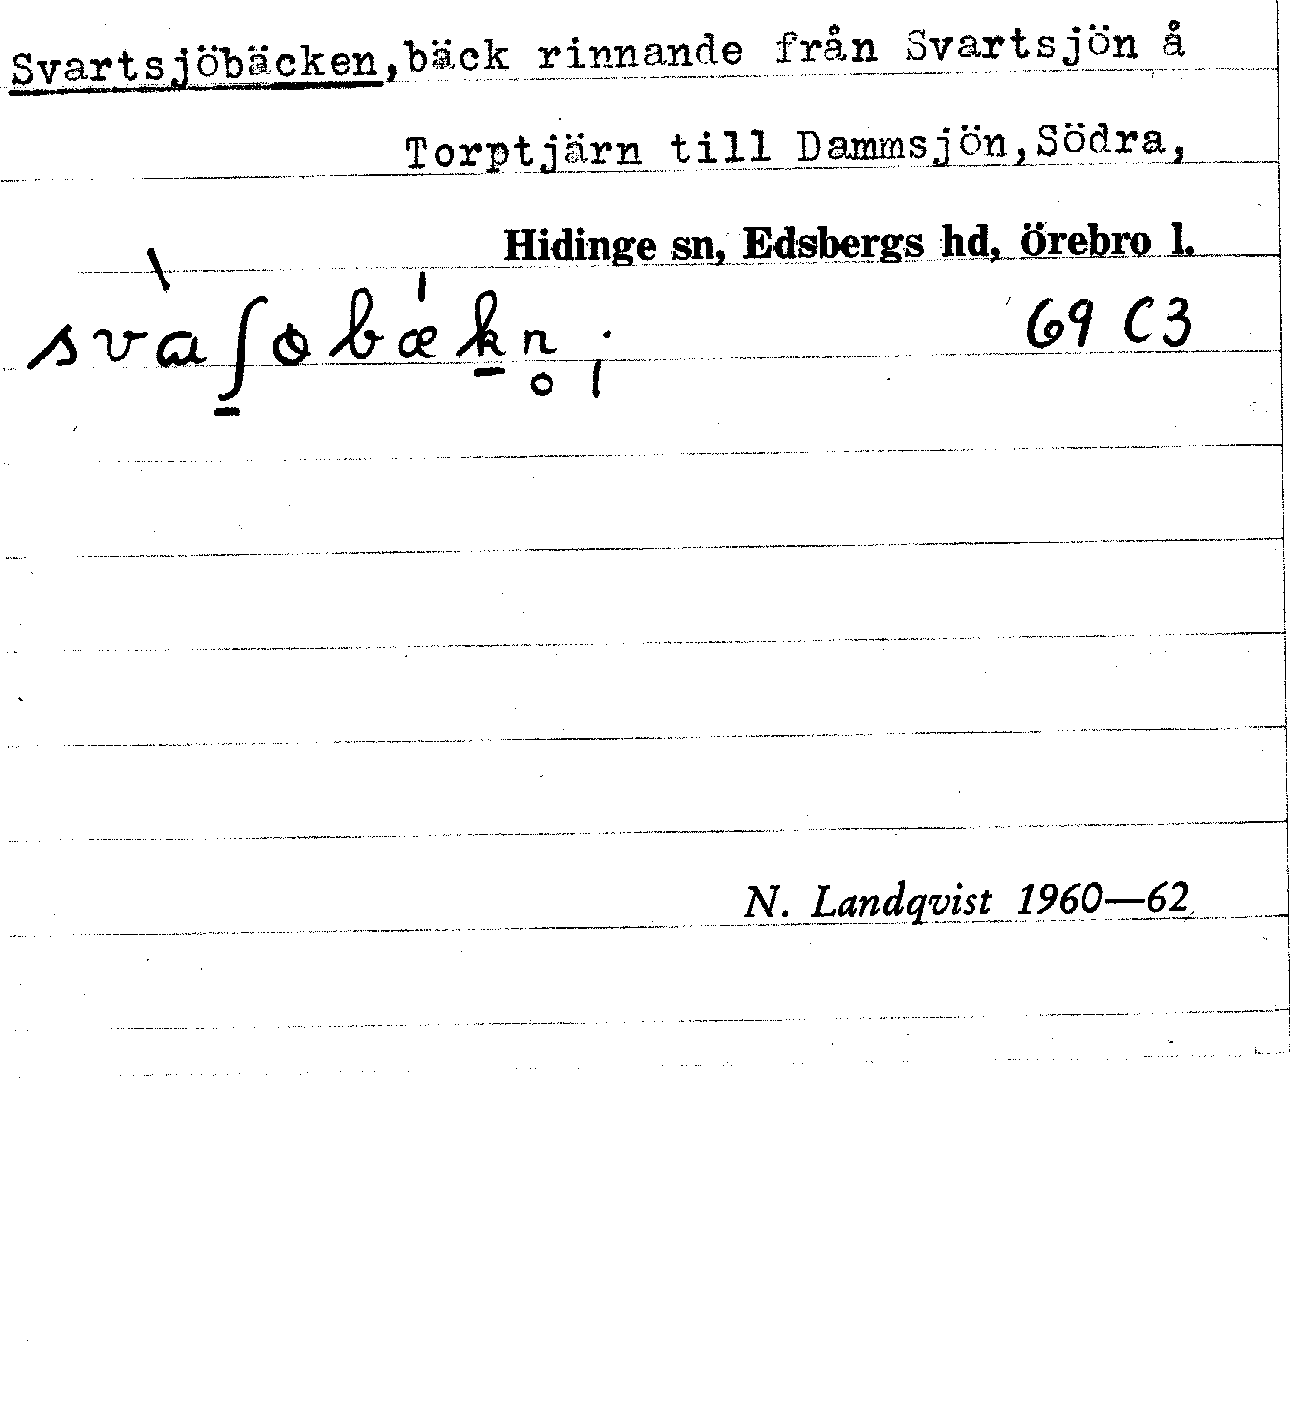 Svartsjöbäcken,bäck rinnande från Svartsjön å
Torptjärn till Dammsjön,Södra,
Hidinge sn, Edsbergs hd, Örebro l.
69 C3
N. Landqvist 1960—62